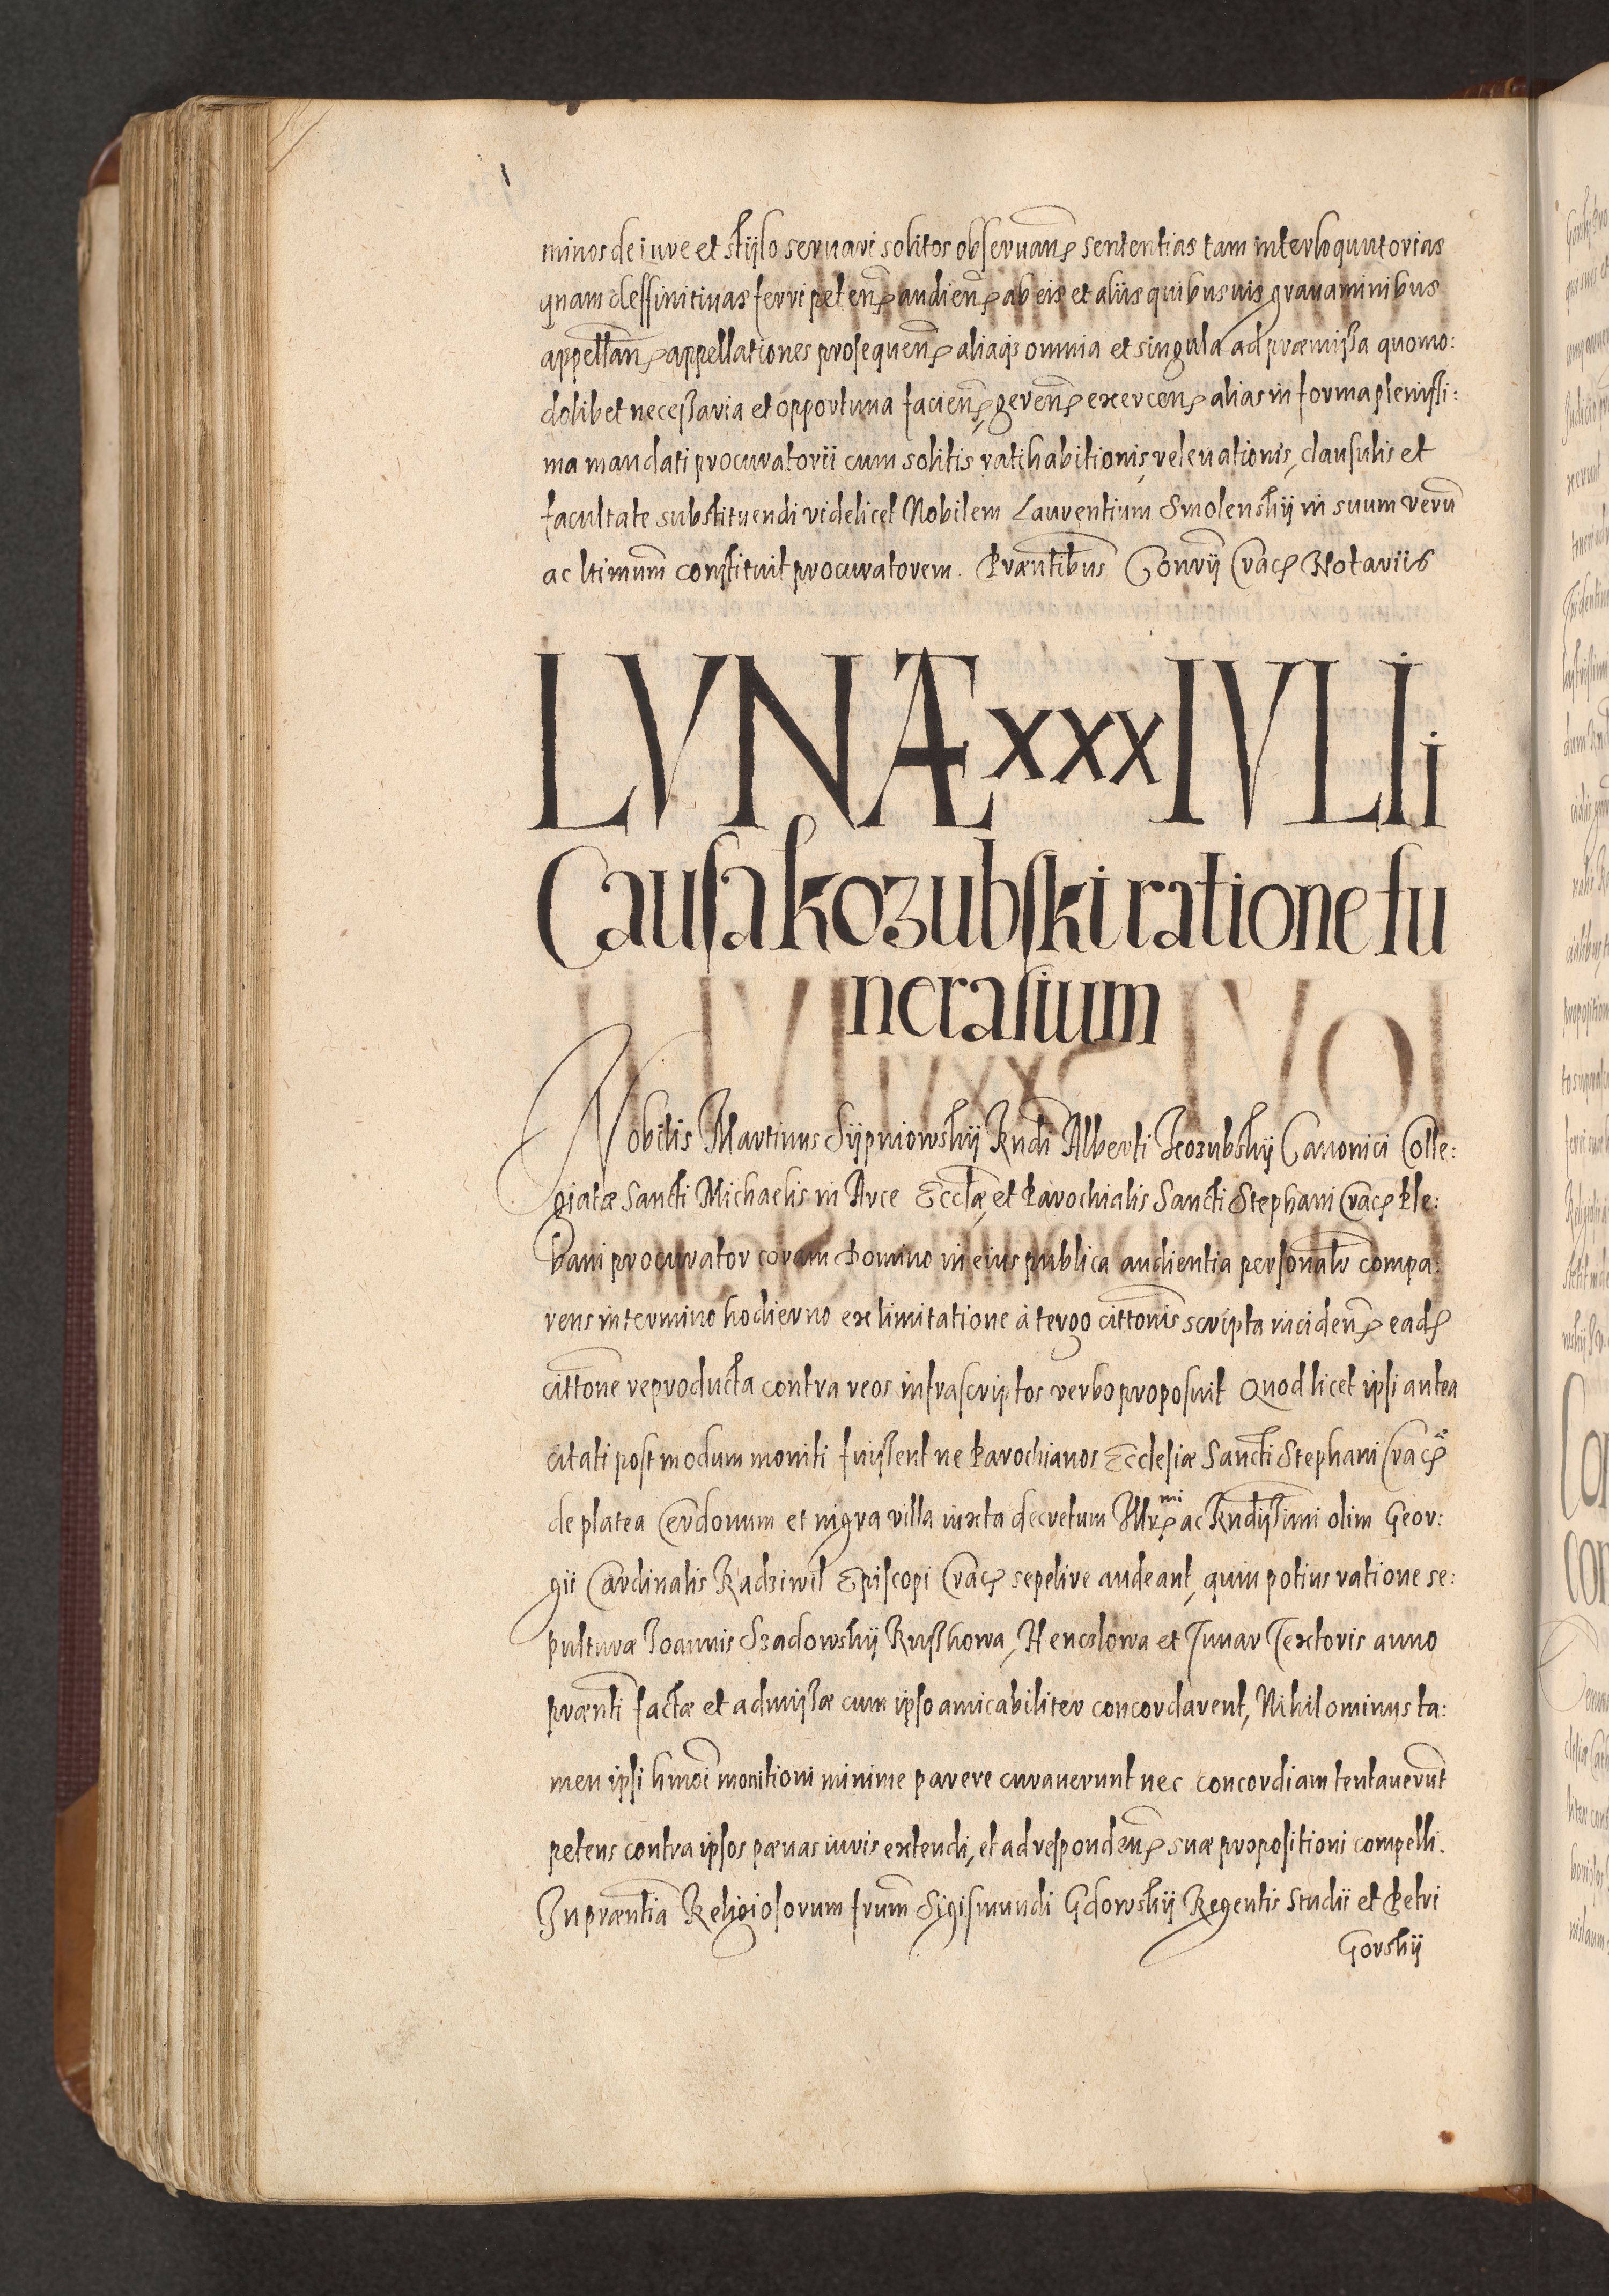 minos de iure et stÿlo seruari solitos obseruan̄ sententias tam interloquutorias
quam deffinitiuas ferri peten̄ audien̄ ab eis et aliis quibusuis grauaminibus
appellan̄ appellationes prosequen̄ aliaqȝ omnia et singula ad præmissa quomo:
dolibet necessaria et opportuna facien̄, geren̄ exercen̄ alias in forma plenissi:
ma mandati procuratorii cum solitis ratihabitionis, releuationis, clausulis et
facultate substituendi videlicet Nobilem Laurentium Smolenskÿ in suum verū
ac ltimum̄ constituit procuratorem. Præn̄tibus Con̄rÿ Crac̄ Notariis
LVNÆ xxx IVLIi
Causa kozubski ratione fu
neralium
Nobilis Martinus Sÿpniowskÿ Rn̄di Alberti Kozubskÿ Canonici Colle:
giatæ Sancti Michaelis in Arce Eccl̄æ, et Parochialis Sancti Stephani Crac̄ Ple:
bani procurator coram Domino in eius publica audientia personalr̄ compa:
rens in termino hodierno ex limitatione à tergo citt̄onis scripta inciden̄ ead̄
citt̄one reproducta contra reos infrascriptos verbo proposuit Quod licet ipsi antea
citati postmodum moniti fuissent ne Parochianos Ecclesiæ Sancti Stephani Crac̄
de platea Cerdonum et nigra villa iuxta decretum Illr̄mi ac Rn̄dissimi olim Geor:
gii Cardinalis Radziwil Episcopi Crac̄ sepelire audeant, quin potius ratione se:
pulturæ Joannis Szadowskÿ Russkowa, Henczlowa et Junar Textoris anno
præn̄ti factæ et admissæ cum ipso amicabiliter concordarent, Nihilominus ta:
men ipsi hm̄oi monitioni minime parere curauerunt nec concordiam tentauerun̄t
petens contra ipsos pœnas iuris extendi, et ad responden̄ suæ propositioni compelli.
In præn̄tia Religiosorum frum̄ Sigismundi Gdowskÿ Regentis Studii et Petri
Gorskÿ